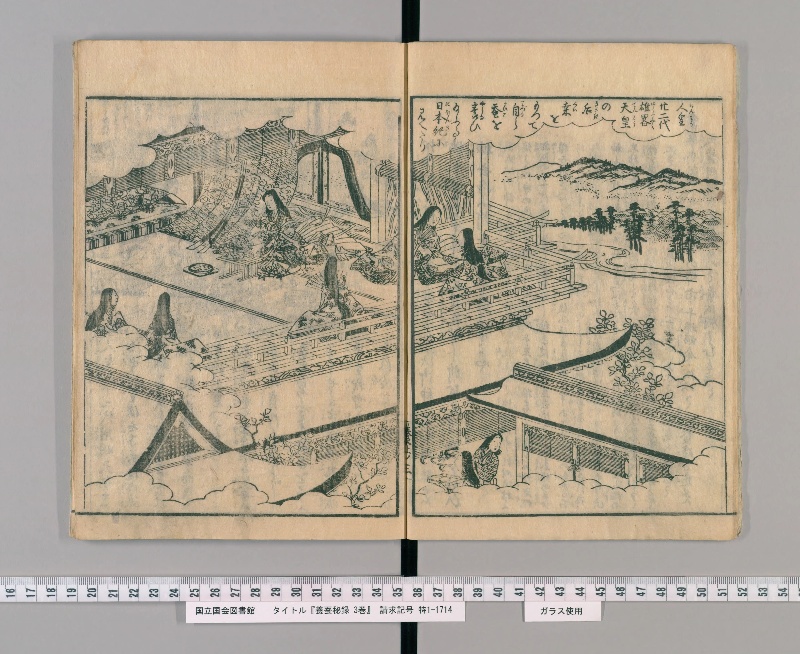 人皇
廿二代
雄略
天皇
の
后
桑と
もつて
自ら
蚕を
養ひ
日本紀に
見へたり
16 17 18 19 20 21 22 23 24 25 26 27 28 29 30 31 32 33 34 35 36 37 38 39 40 41 42 43 44 45 46 47 48 49 50 51 52 53 54
国立国会図書館 タイトル『養蚕秘録 3巻』 請求記号 特1-1714
ガラス使用